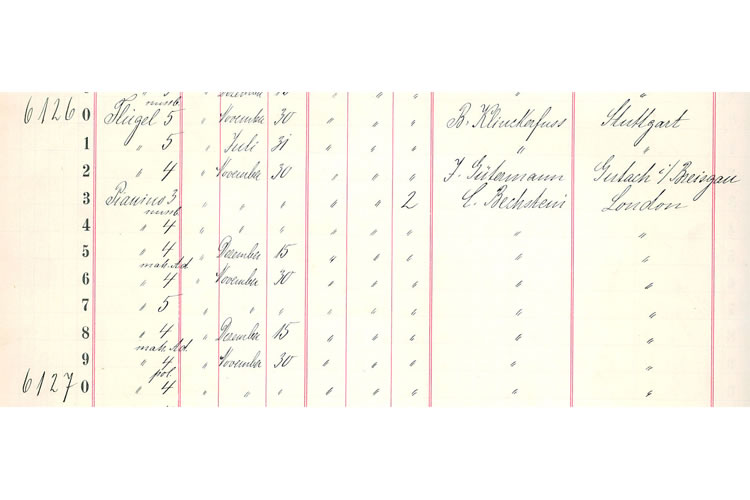 " 5 " Dezember 15 " " " " "
nussb.
6126 0 Flügel 5 " November 30 " " " B. Klinckerfuss Stuttgart
1 " 5 " Juli 31 " " " " "
2 " 4 " November 30 " " " F. Gütermann Gutach i/Breisgau
3 Pianino 3 " " " " " 2 C. Bechstein London
nussb.
4 " 4 " " " " " " " "
5 " 4 " Dezember 15 " " " " "
mah. Ad.
6 " 4 " November 30 " " " " "
7 " 5 " " " " " " " "
8 " 4 " Dezember 15 " " " " "
mah. Ad.
9 " 4 " November 30 " " " " "
pol.
6127 0 " 4 " " " " " " " "